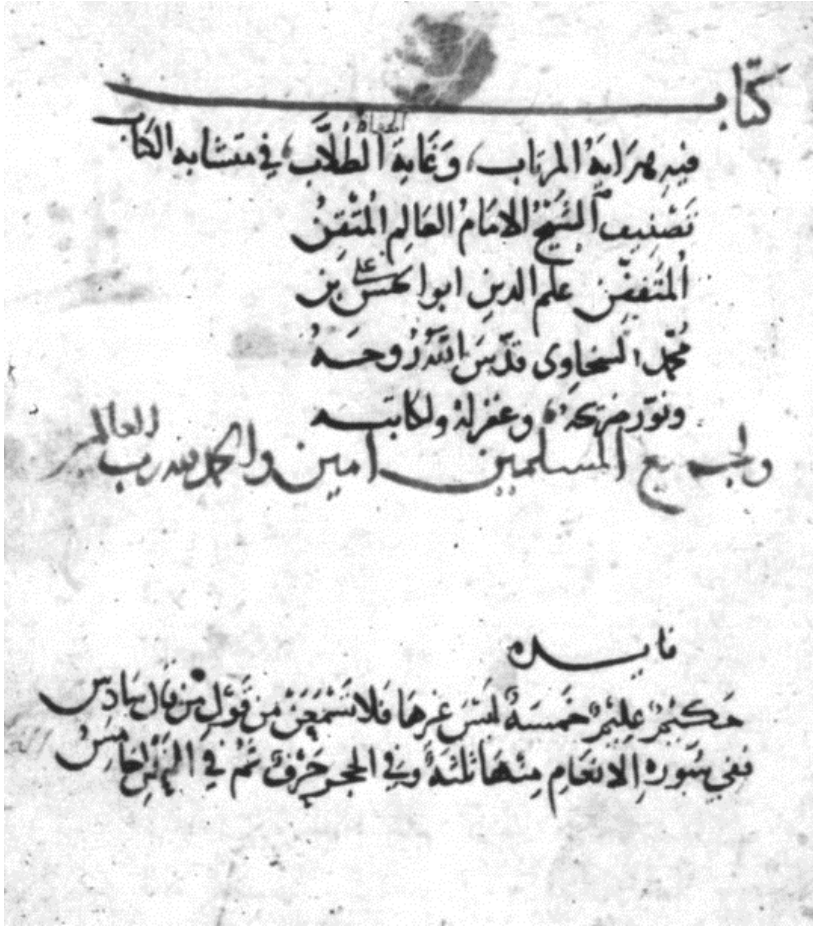 كتاب
فيه هداية المرتاب، وغاية الحفاظ الطلاب، في متشابه الكتاب
تصنيف الشيخ الامام العالم المتقن
المتفنن علم الدين ابوا الحسن علي بن
محمد السخاوى قدس الله روحه
ونور ضريحه وغفر له ولكاتبه
ولجميع المسلمين امين والحمد لله رب العالمين
فايده
حكيم عليم خمسة ليس غيرها فلا تسمعن من قول من قال سادس
ففي سورة الانعام منها ثلثة وفي الحجر حرف ثم في النمل خامس